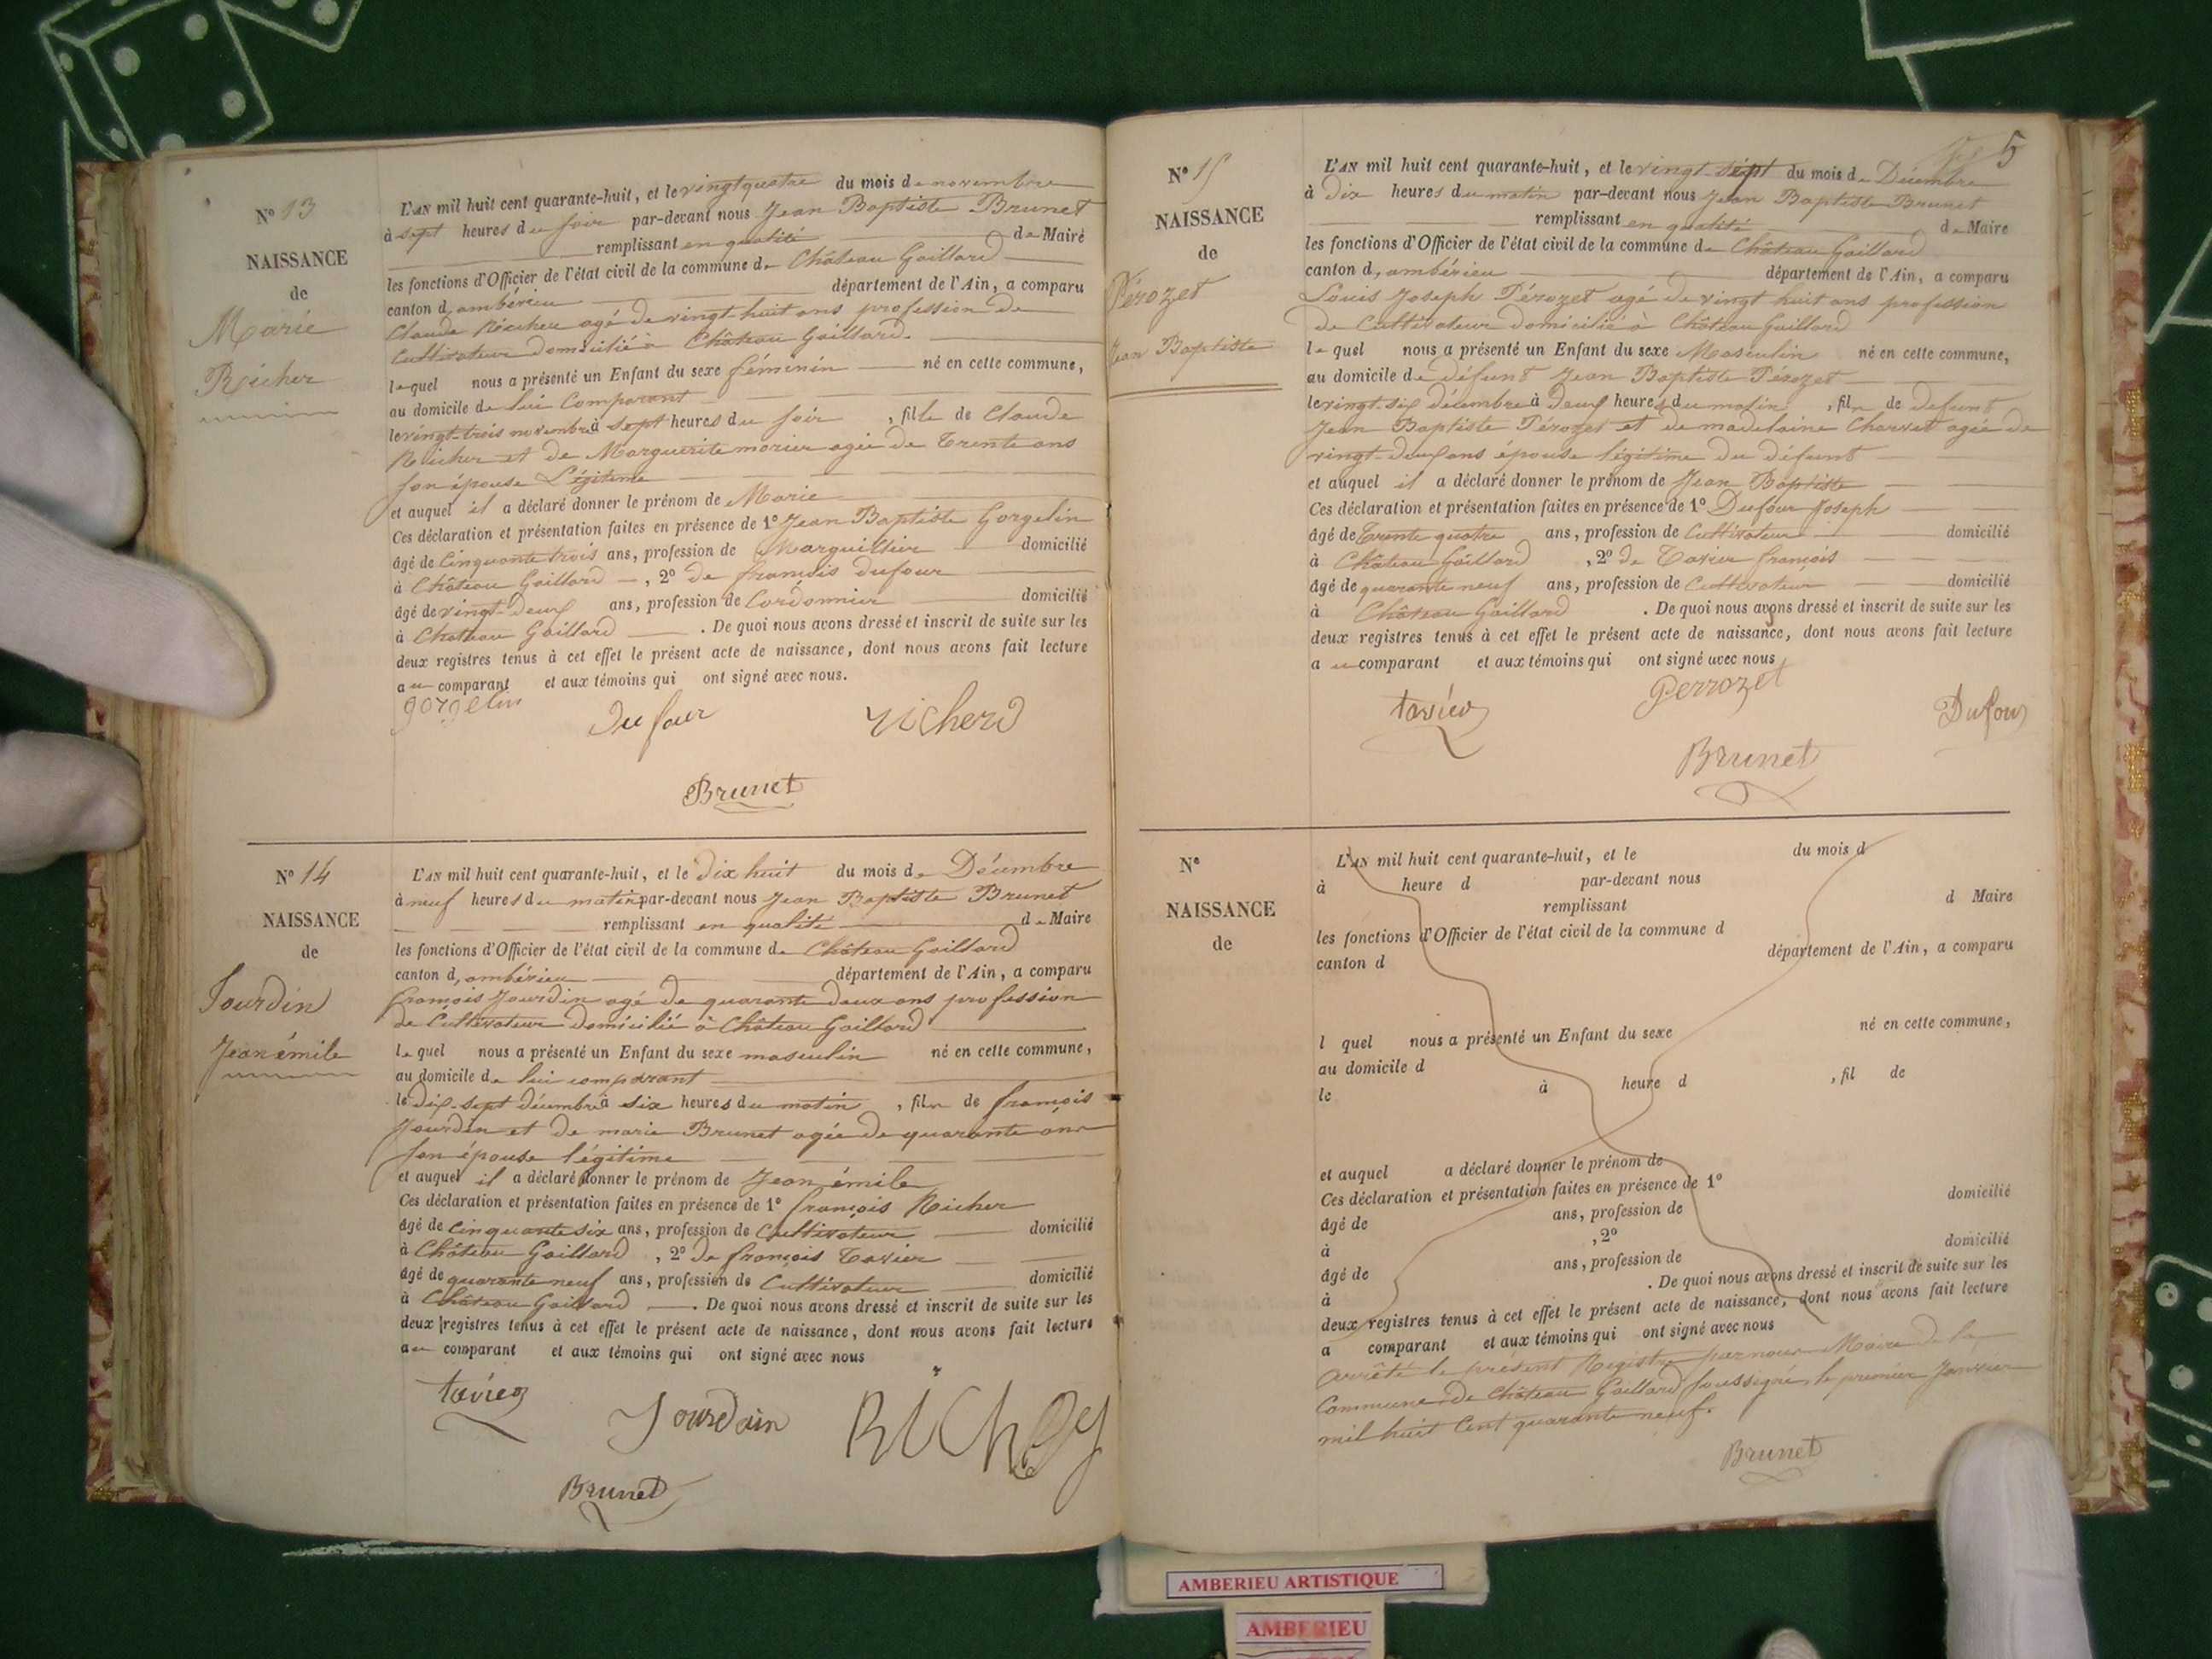 N° 13
NAISSANCE
de
Marie
Richer
L'AN mil huit cent quarante-huit, et le vingt quatre du mois de novembre
à sept heures du soir par-devant nous Jean Baptiste Brunet
remplissant en qualité de Maire
les fonctions d'Officier de l'état civil de la commune de Château Gaillard
canton d'ambérieu département de l'Ain, a comparu
Claude Richer agé de vingt-huit ans profession de
Cultivateur domicilié à Château Gaillard.
lequel nous a présenté un Enfant du sexe féminin né en cette commune,
au domicile de lui Comparant
le vingt-trois novembre à sept heures du soir, fille de Claude
Richer et de Marguerite morier agée de Trente ans
son épouse Légitime
et auquel il a déclaré donner le prénom de Marie
Ces déclaration et présentation faites en présence de 1° Jean Baptiste Gorgelin
âgé de Cinquante trois ans, profession de Marguillier domicilié
à Château Gaillard, 2° de françois dufour
âgé de vingt-deux ans, profession de Cordonnier domicilié
à Château Gaillard. De quoi nous avons dressé et inscrit de suite sur les
deux registres tenus à cet effet le présent acte de naissance, dont nous avons fait lecture
au comparant et aux témoins qui ont signé avec nous.
gorgelin
Dufour
richerd
Brunet
N° 14
NAISSANCE
de
Jourdin
Jean émile
L'AN mil huit cent quarante-huit, et le dix huit du mois de Décembre
à neuf heures du matin par-devant nous Jean Baptiste Brunet
remplissant en qualité de Maire
les fonctions d'Officier de l'état civil de la commune de Château Gaillard
canton d'ambérieu département de l'Ain, a comparu
françois Jourdin agé de quarante deux ans profession
de Cultivateur domicilié à Château Gaillard
lequel nous a présenté un Enfant du sexe masculin né en cette commune,
au domicile de lui comparant
le dix-sept décembre à six heures du matin, fils de françois
Jourdin et de marie Brunet agée de quarante ans
son épouse légitime
et auquel il a déclaré donner le prénom de Jean émile
Ces déclaration et présentation faites en présence de 1° françois Richer
âgé de Cinquante six ans, profession de Cultivateur domicilié
à Château Gaillard, 2° de françois Tavier
âgé de quarante neuf ans, profession de Cultivateur domicilié
à Château Gaillard. De quoi nous avons dressé et inscrit de suite sur les
deux registres tenus à cet effet le présent acte de naissance, dont nous avons fait lecture
au comparant et aux témoins qui ont signé avec nous
tavier
Jourdain
Brunet
5
N° 15
NAISSANCE
de
Pérozet
Jean Baptiste
L'AN mil huit cent quarante-huit, et le vingt-sept du mois de Décembre
à Dix heures du matin par-devant nous Jean Baptiste Brunet
remplissant en qualité de Maire
les fonctions d'Officier de l'état civil de la commune de Château Gaillard
canton d'ambérieu département de l'Ain, a comparu
Louis Joseph Pérozet agé de vingt huit ans profession
de Cultivateur domicilié à Château Gaillard
lequel nous a présenté un Enfant du sexe Masculin né en cette commune,
au domicile de défunt Jean Baptiste Pérozet
le vingt-six décembre à deux heures du matin, fils de defunt
Jean Baptiste Pérozet et de madelaine Charvet agée de
vingt-deux ans épouse légitime du défunt
et auquel il a déclaré donner le prénom de Jean Baptiste
Ces déclaration et présentation faites en présence de 1° Dufour Joseph
âgé de Trente quatre ans, profession de Cultivateur domicilié
à Château Gaillard, 2° de Tavier françois
âgé de quarante neuf ans, profession de Cultivateur domicilié
à Château Gaillard. De quoi nous avons dressé et inscrit de suite sur les
deux registres tenus à cet effet le présent acte de naissance, dont nous avons fait lecture
au comparant et aux témoins qui ont signé avec nous
tavier
Perrozet
Dufour
Brunet
N°
NAISSANCE
de
L'AN mil huit cent quarante-huit, et le du mois d
à heure d par-devant nous
remplissant d Maire
les fonctions d'Officier de l'état civil de la commune d
canton d département de l'Ain, a comparu
l quel nous a présenté un Enfant du sexe né en cette commune,
au domicile d
le à heure d , fil de
et auquel a déclaré donner le prénom de
Ces déclaration et présentation faites en présence de 1°
âgé de ans, profession de domicilié
à , 2°
âgé de ans, profession de domicilié
à . De quoi nous avons dressé et inscrit de suite sur les
deux registres tenus à cet effet le présent acte de naissance, dont nous avons fait lecture
a comparant et aux témoins qui ont signé avec nous
arrêté le présent Registre par nous Maire de la
Commune de Château Gaillard soussigné, le premier Janvier
mil huit Cent quarante neuf.
Brunet
AMBERIEU ARTISTIQUE
AMBERIEU